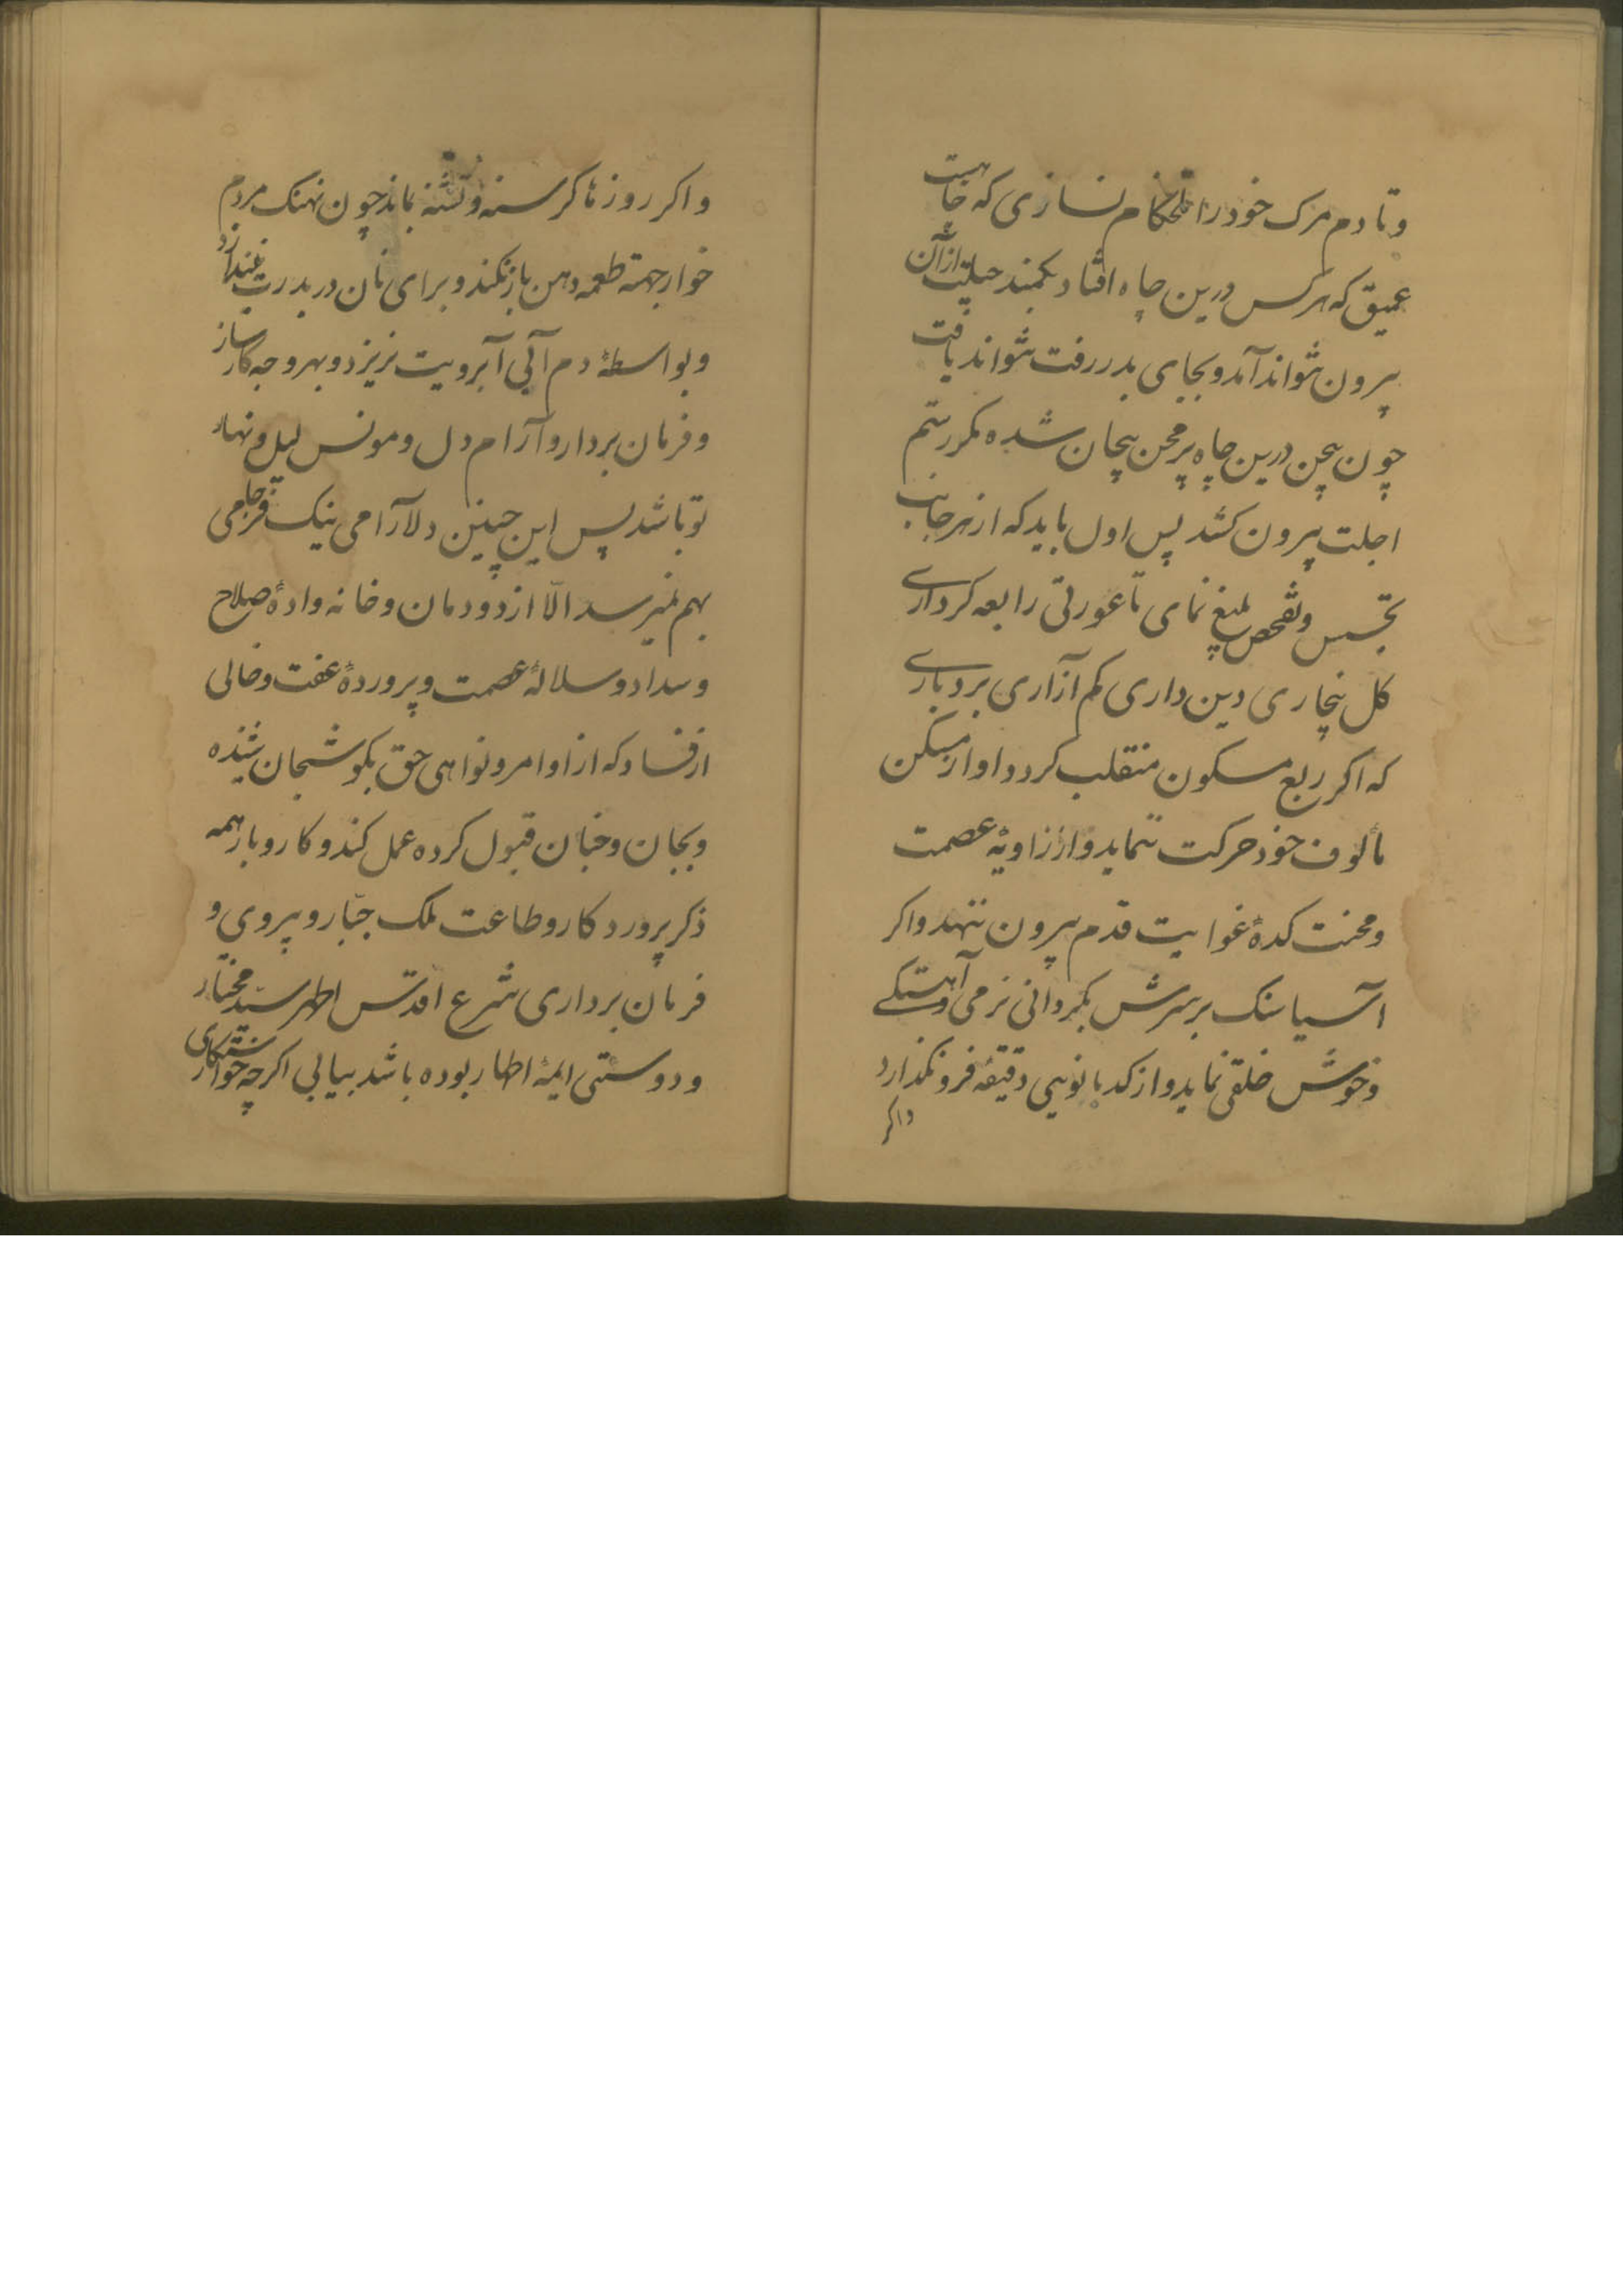 و تا دم مرک خود را تلخکام نسازی که چاهیست
عمیق که هرکس درین چاه افتاد بکمند حیلت از آن
بیرون نتواند آمد و بجای بدر رفت نتواند یافت
چون بیجن درین چاه پر محن پیچان شده مکر رستم
اجلت بیرون کشد پس اول باید که از هر جانب
تجسس و تفحص بلیغ نمای تا عورتی رابعه کرداری
کل بیخاری دین داری کم آزاری بردباری
که اکر ربع مسکون منقلب کردد او از مسکن
مألوف خود حرکت ننماید و از زاویهٔ عصمت
و محنت کدهٔ غوایت قدم بیرون ننهد و اکر
آسیا سنک بر سرش بکردانی نرمی و آهستکی
و خوش خلقی نماید و از کدبانویی دقیقه فرو نکذارد
واکر
و اکر روزها کرسنه و تشنه بماند چون نهنک مردم
خوار جهة طعمه دهن باز نکند و برای نان در بدرت نیندازد
و بواسطهٔ دم آبی آبرویت نریزد و بهر وجه کارساز
و فرمان بردار و آرام دل و مونس لیل و نهار
تو باشد پس این چنین دلارامی نیک فرجامی
بهم نمیرسد الّا از دودمان و خانه وادهٔ صلاح
و سداد و سلالهٔ عصمت و پروردهٔ عفت و خالی
از فساد که از اوامر و نواهی حق بکوش جان شنیده
و بجان و جنان قبول کرده عمل کند و کاروبار همه
ذکر پروردکار و طاعت ملک جبّار و پیروی و
فرمان برداری شرع اقدس اطهر سیّد مختار
و دوستی ایمهٔ اطهار بوده باشد بیابی اکرچه خواستکاری